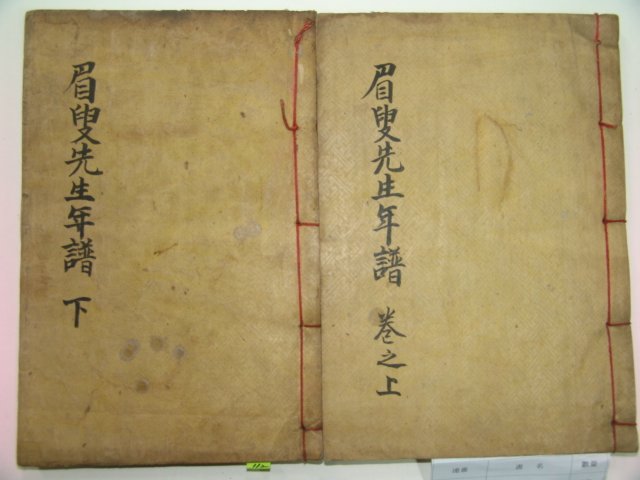 眉叟先生年譜 卷之上
眉叟先生年譜 下
書名
數量